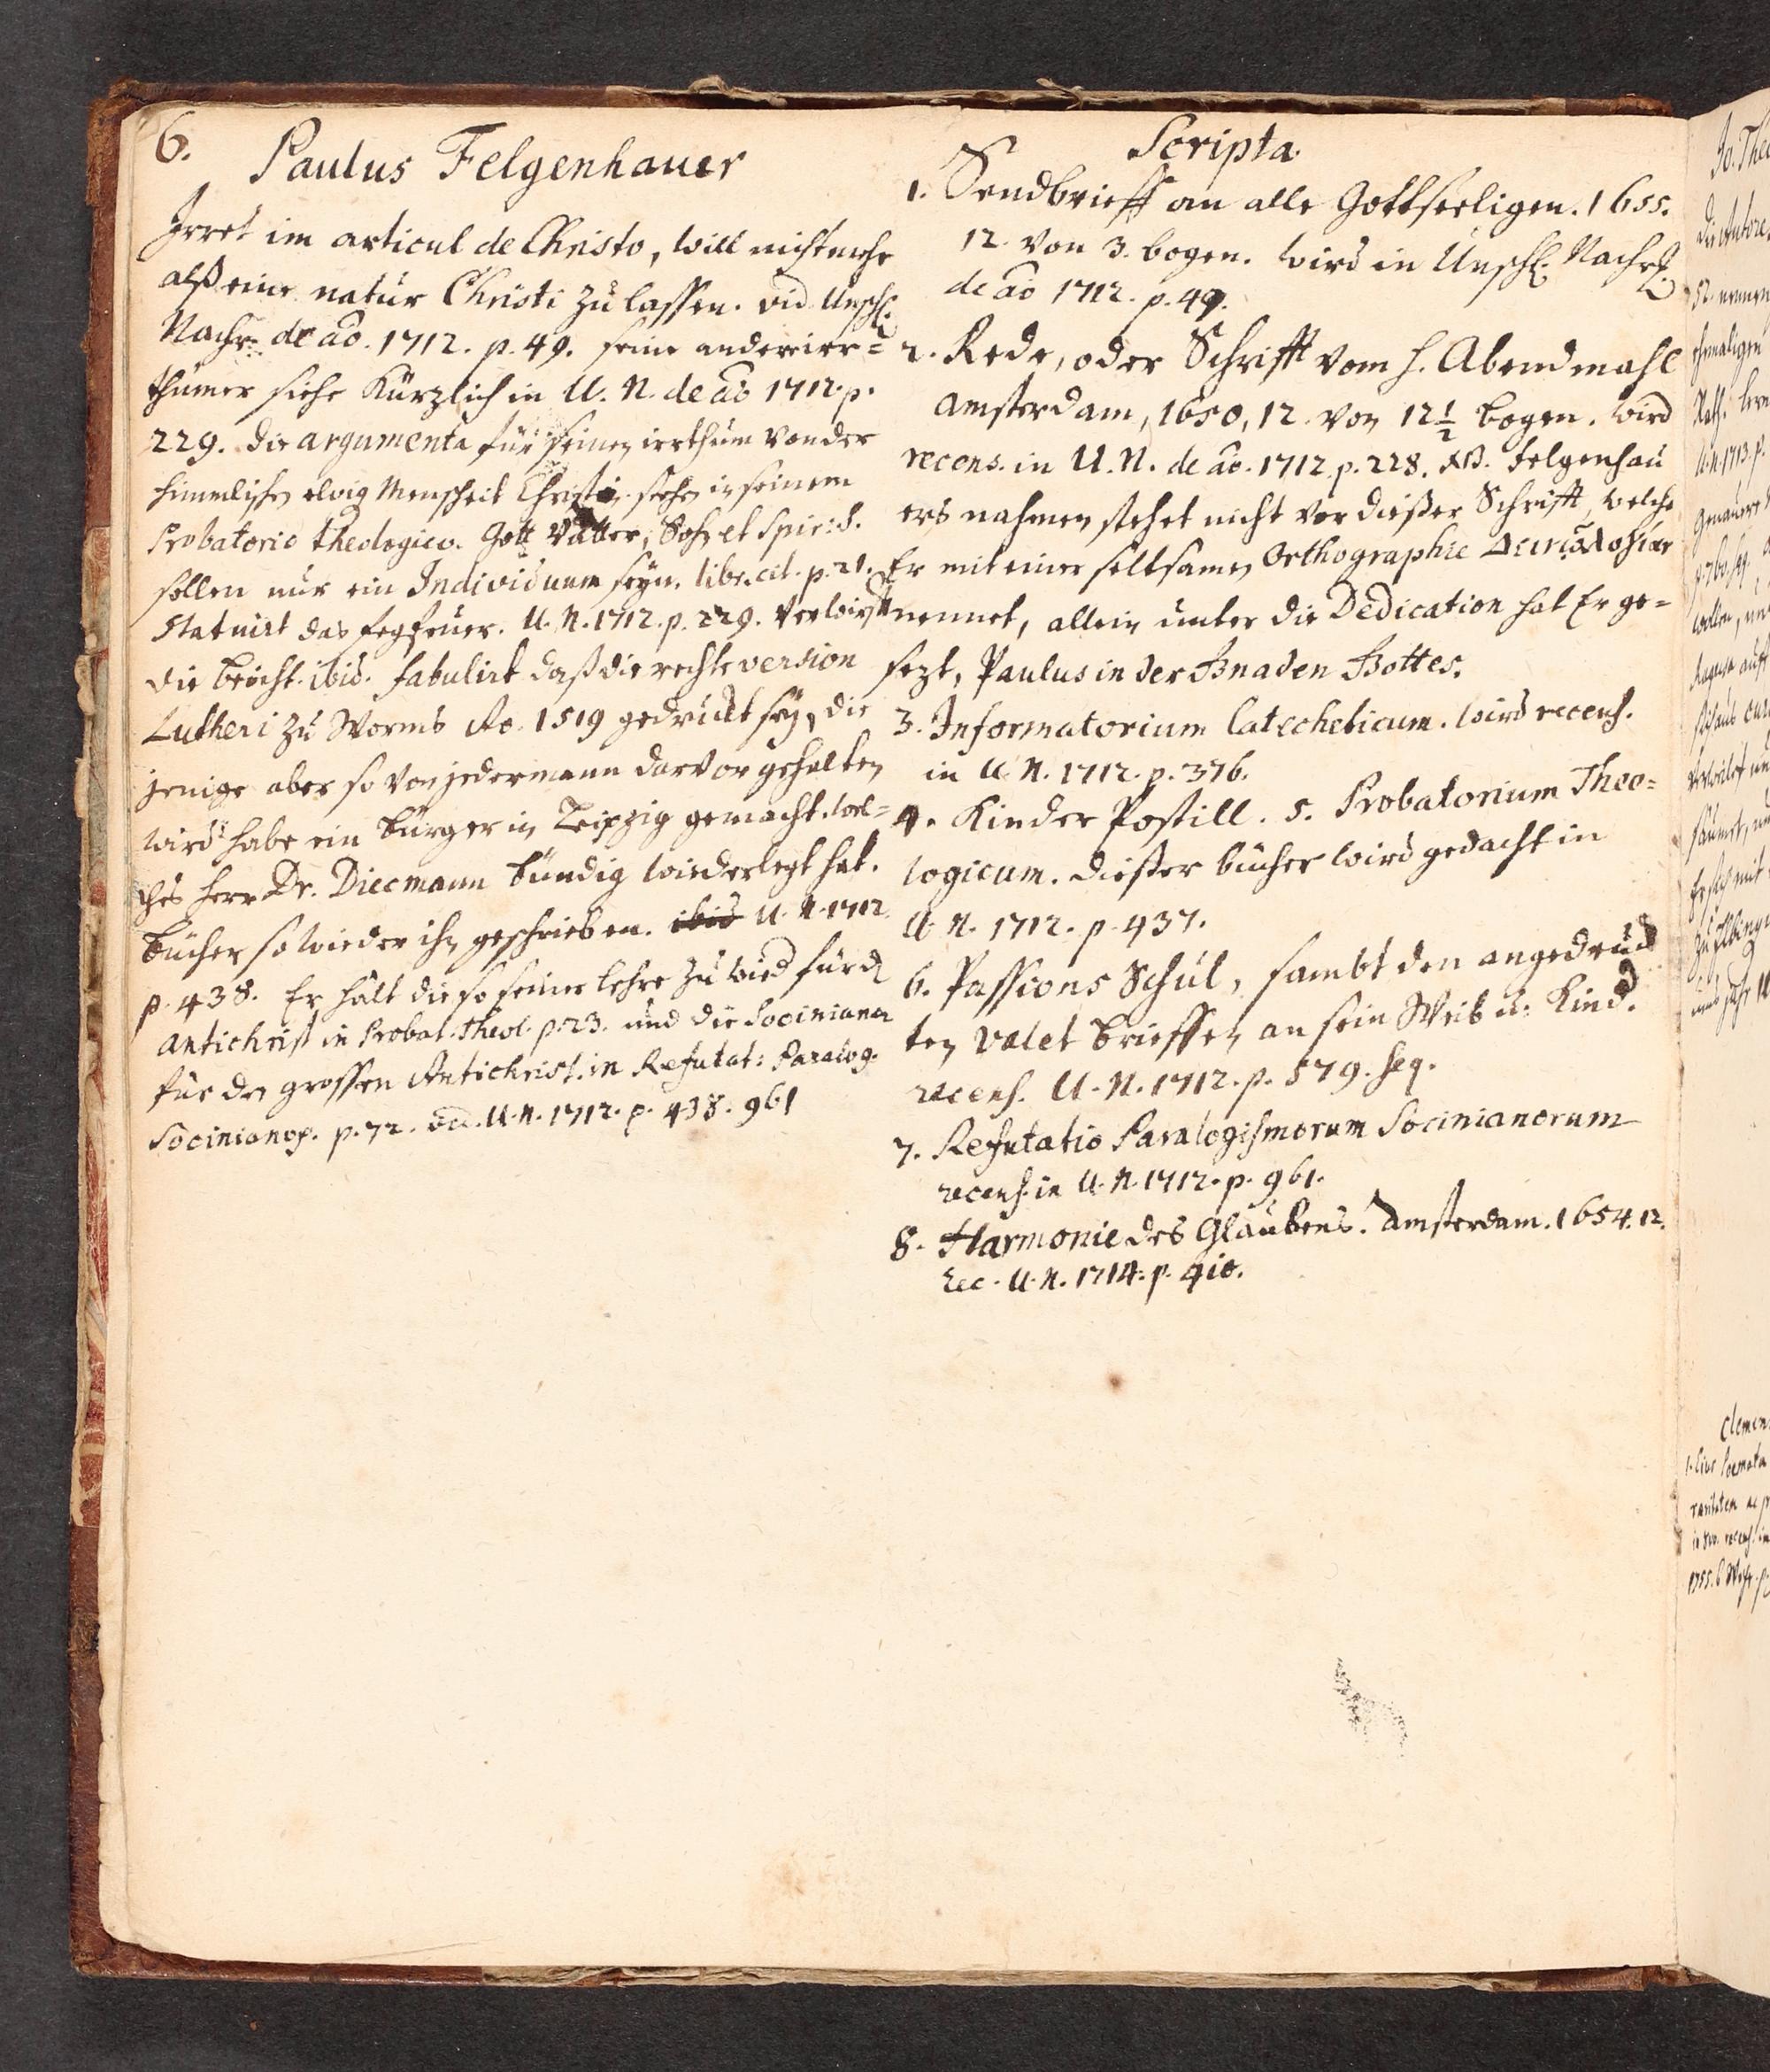 6.
Paulus Felgenhauer
Irret im articul de Christo, will nicht mehr
alß eine natur Christi zu lassen. vid. Unsch.
Nachr. de ao. 1712. p. 49. seine andere irr=
thümer siehe kürzlich in U. N. de ao 1712. p.
229. die argumenta für seinen irrthum von der
himmlischen ewig Menscheit Christi stehen in seinem
Probatorio theologico. Gott Vatter, Sohn et Spir: S.
sollen nur ein Individuum seyn. libr. cit. p. 21.
Statuirt das fegfeuer. U. N. 1712. p. 229. Verwirfft
die beicht. ibid. fabulirt daß die rechte version
Lutheri zu Worms Ao. 1519 gedruckt sey, die
jenige aber so von jedermann darvor gehalten
wird habe ein bürger in Leipzig gemacht. wel=
ches Herr Dr. Diecmann bündig wiederlegt hat.
bücher so wieder ihn geschrieben. ibid U. N. 1712
p. 438. Er hält die so seiner lehre zu wied für d
Antichrist in Probat. Theol. p. 23. und die Socinianer
für den grossen Antichrist. in Refutat: Paralog.
Socinianor. p. 72. vid. U. N. 1712. p. 438. 961
Scripta.
1. Sendbrieff an alle Gottseeligen. 1655.
12. von 3. bogen. wird in Unsch. Nachr.
de ao 1712. p. 49.
2. Rede, oder Schrifft vom H. Abendmahl
Amsterdam, 1650, 12. von 12 1/2 bogen. wird
recens. in U. N. de ao. 1712. p. 228. NB. Felgenhau
ers nahmen stehet nicht vor dießer Schrifft, welche
Er mit einer seltsamen Orthographie
nennet, allein unter die Dedication hat Er ge=
sezt, Paulus in der Gnaden Gottes.
3. Informatorium Catecheticum. wird recens.
in U. N. 1712. p. 376.
4. Kinder Postill. 5. Probatorium Theo=
logicum. dießer bücher wird gedacht in
U. N. 1712. p. 437.
6. Passions Schul, sambt den angedruck
ten Valet brieffen an sein Weib u. Kind.
recens. U. N. 1712. p. 579. seq.
7. Refutatio Paralogismorum Socinianorum
recens. in U. N. 1712. p. 961.
8. Harmonie des Glaubens. Amsterdam. 1654. 12.
rec. U. N. 1714. p. 410.